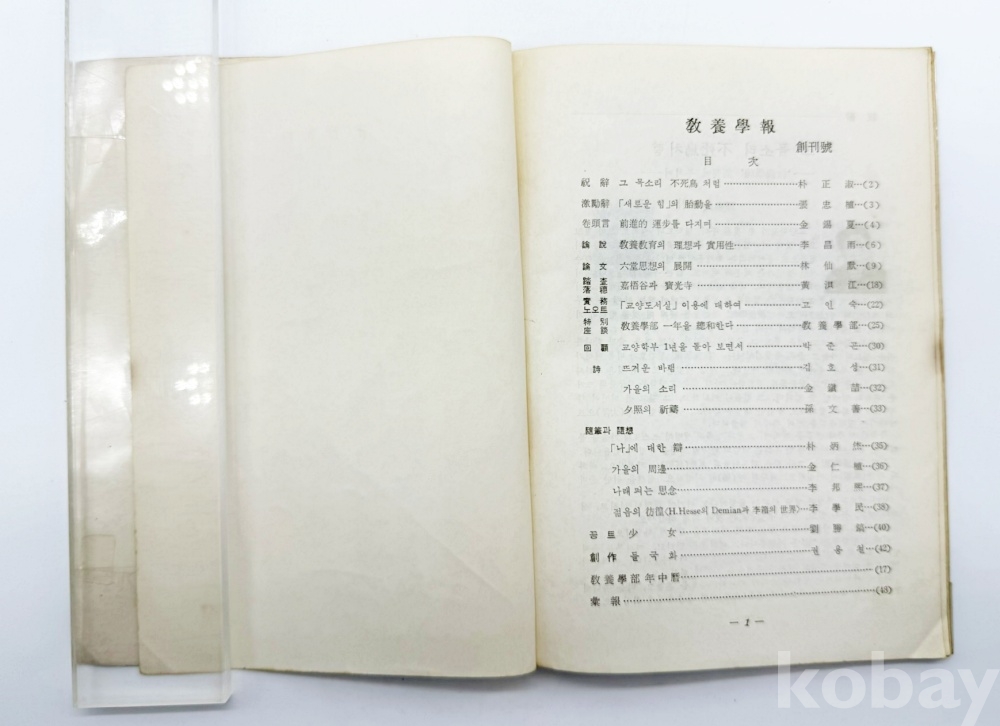 敎養學報
創刊號
目 次
祝 辭 그 목소리 不死鳥 처럼 朴 正 (2)
激勵辭 「새로운 힘」의 胎動을 張 忠 植 (3)
卷頭言 前進的 運步를 다지며 金 錫 夏 (4)
論 說 敎養敎育의 理想과 實用性 李 昌 (6)
論 文 六堂思想의 展開 林 仙 (9)
踏査 高梧谷과 寶光寺 黃 江 (18)
實 務 노오트 「교양도서실」 이용에 대하여 고 인 숙 (22)
特 別 座 談 敎養學部 一年을 總和한다 敎 養 學 部 (25)
回 顧 교양학부 1년을 돌아 보면서 박 준 (30)
詩 뜨거운 바램 김 호 성 (31)
가을의 소리 金 (32)
夕照의 祈禱 孫 文 (33)
隨筆과 隨想
「나」에 대한 辯 朴 炳 (35)
가을의 周邊 金 仁 植 (36)
나래 펴는 思念 李 熙 (37)
젊음의 彷徨(H. Hesse의 Demian과 李箱의 世界) 李 學 民 (38)
꽁 트 少 女 劉 勝 (40)
創 作 들 국 화 용 (42)
敎養學部年中曆 (17)
彙 報 (48)
— 1 —
kobay